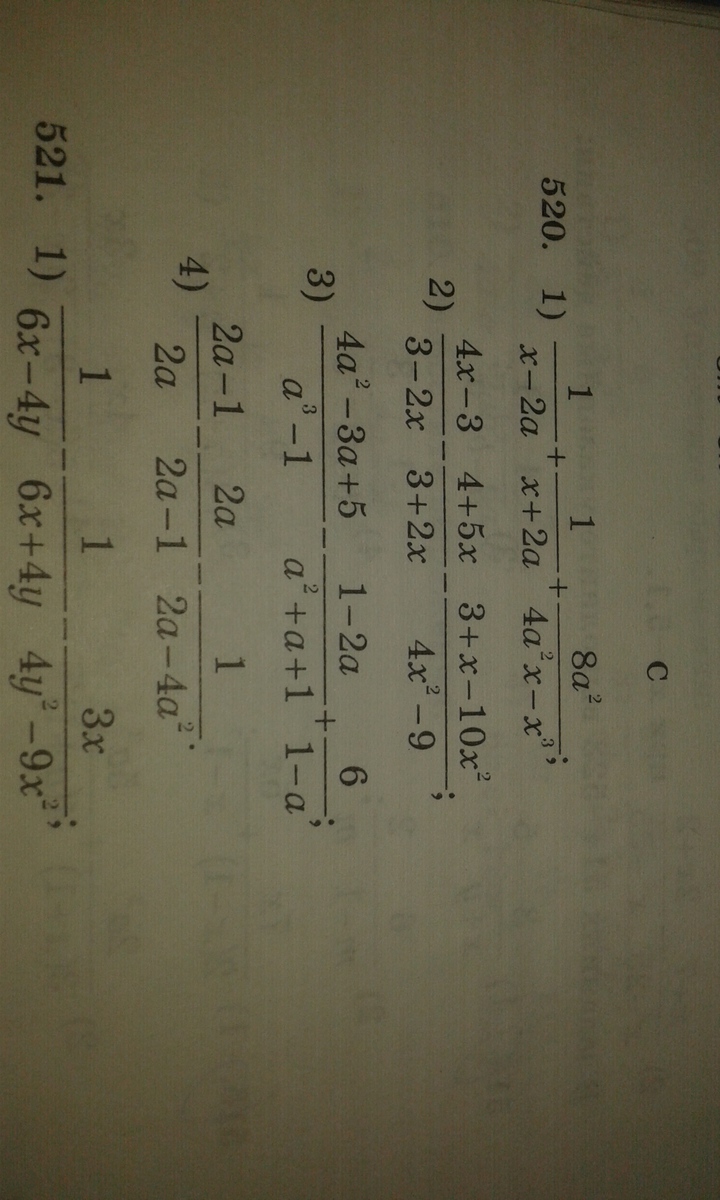 C
520. 1) 1/(x−2a) + 1/(x+2a) + 8a²/(4a²x−x³);
2) (4x−3)/(3−2x) − (4+5x)/(3+2x) − (3+x−10x²)/(4x²−9);
3) (4a²−3a+5)/(a³−1) − (1−2a)/(a²+a+1) + 6/(1−a);
4) (2a−1)/2a − 2a/(2a−1) − 1/(2a−4a²).
521. 1) 1/(6x−4y) − 1/(6x+4y) − 3x/(4y²−9x²);